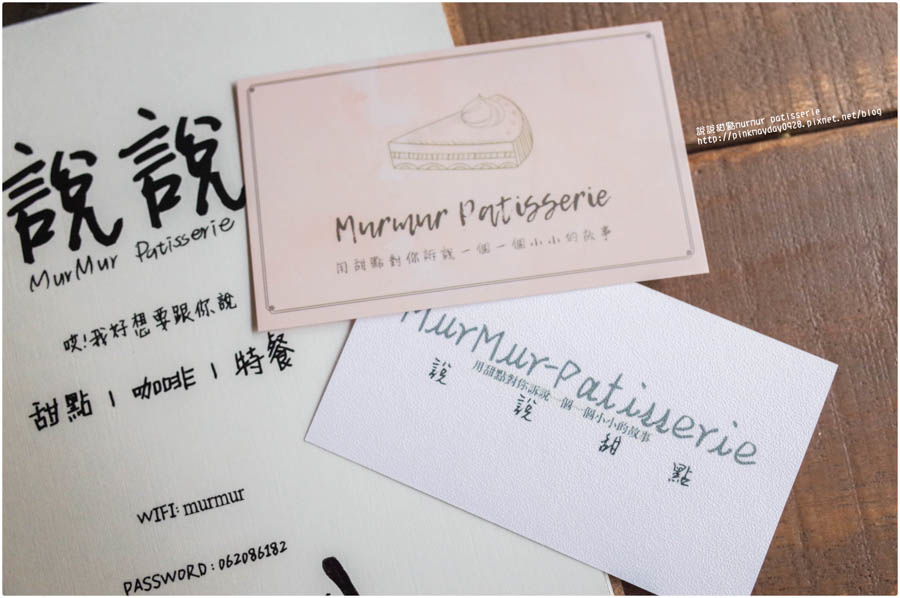 說說
MurMur Patisserie
哎!我好想要跟你說
甜點 | 咖啡 | 特餐
WIFI: murmur
PASSWORD : 062086182
Murmur Patisserie
用甜點對你訴說一個一個小小的故事
MurMur-Patisserie
用甜點對你訴說一個一個小小的故事
說
說
甜
點
說說甜點murmur patisserie
http://pinkmayday0928.pixnet.net/blog